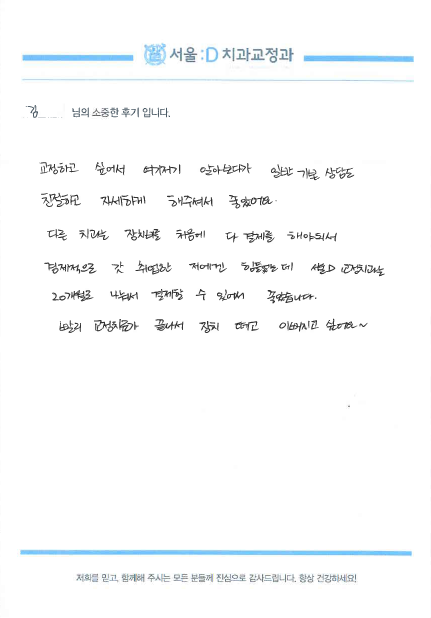 서울:D 치과교정과
김 님의 소중한 후기 입니다.
교정하고 싶어서 여기저기 알아보다가 일단 기본 상담도
친절하고 자세하게 해주셔서 좋았어요.
다른 치과는 장치비를 처음에 다 결제를 해야되서
경제적으로 갓 취업한 저에겐 힘들었는데 서울D 교정치과는
20개월로 나눠서 결제할 수 있어서 좋았습니다.
빨리 교정치료가 끝나서 장치 떼고 이뻐지고 싶어요~
저희를 믿고, 함께해 주시는 모든 분들께 진심으로 감사드립니다. 항상 건강하세요!